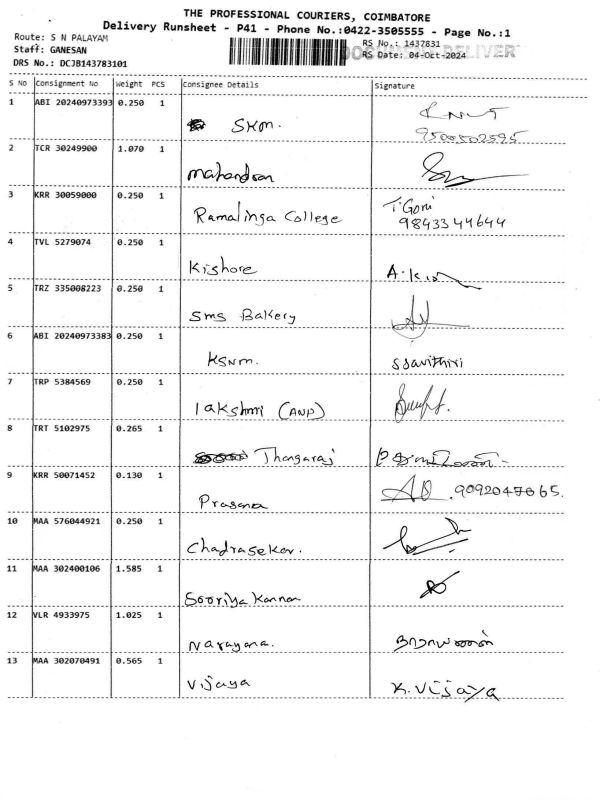 THE PROFESSIONAL COURIERS, COIMBATORE
Delivery Runsheet - P41 - Phone No.:0422-3505555 - Page No.:1
Route: S N PALAYAM
RS No.: 1437831
Staff: GANESAN
RS Date: 04-Oct-2024
DRS No.: DCJB143783101
S No Consignment No Weight PCS Consignee Details Signature
1 ABI 20240973393 0.250 1
SKM.
9500502595
2 TCR 30249900 1.070 1
Mahendran
3 KRR 30059000 0.250 1
Ramalinga College
98433 44644
4 TVL 5279074 0.250 1
Kishore
5 TRZ 335008223 0.250 1
SMS Bakery
6 ABI 20240973383 0.250 1
KSNM. SSavithiri
7 TRP 5384569 0.250 1
lakshmi (ANP)
8 TRT 5102975 0.265 1
Thangaraj
9 KRR 50071452 0.130 1
Prasana
10 MAA 576044921 0.250 1
Chadrasekar.
11 MAA 302400106 1.585 1
Sooriya Kannan
12 VLR 4933975 1.025 1
Narayana. நாராயணன்
13 MAA 302070491 0.565 1
Vijaya K.Vijaya